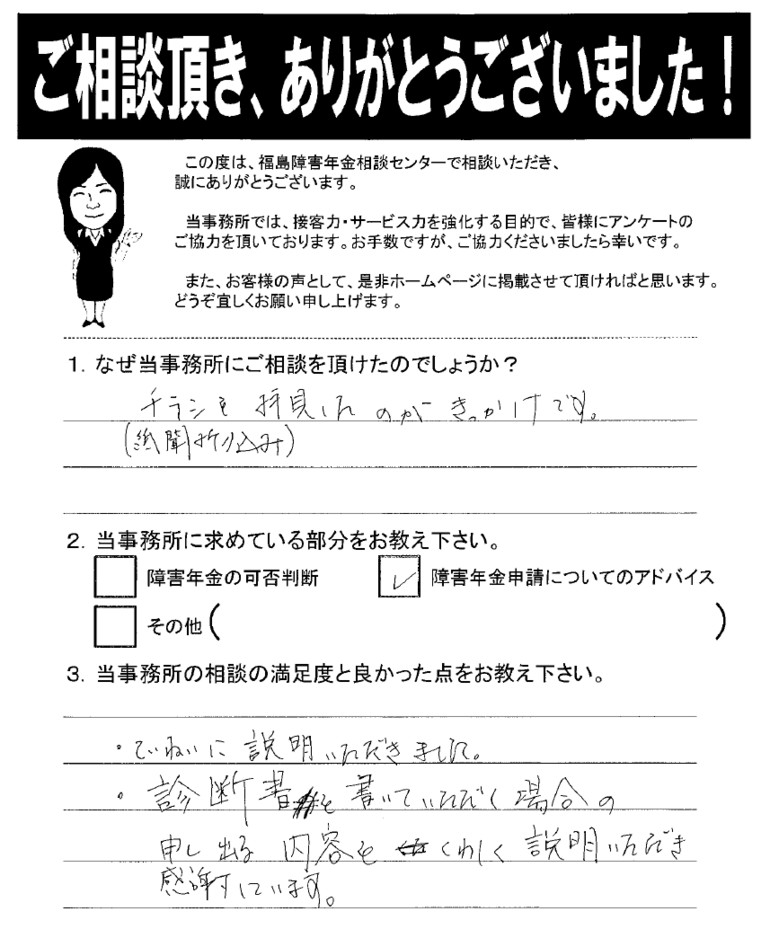 ご相談頂き、ありがとうございました！
この度は、福島障害年金相談センターで相談いただき、
誠にありがとうございます。
当事務所では、接客力・サービス力を強化する目的で、皆様にアンケートの
ご協力を頂いております。お手数ですが、ご協力くださいましたら幸いです。
また、お客様の声として、是非ホームページに掲載させて頂ければと思います。
どうぞ宜しくお願い申し上げます。
1. なぜ当事務所にご相談を頂けたのでしょうか？
チラシを拝見したのがきっかけです。
(新聞折り込み)
2. 当事務所に求めている部分をお教え下さい。
障害年金の可否判断 障害年金申請についてのアドバイス
その他( )
3. 当事務所の相談の満足度と良かった点をお教え下さい。
・ていねいに説明いただきました。
・診断書を書いていただく場合の
申し出る内容をくわしく説明いただき
感謝しています。